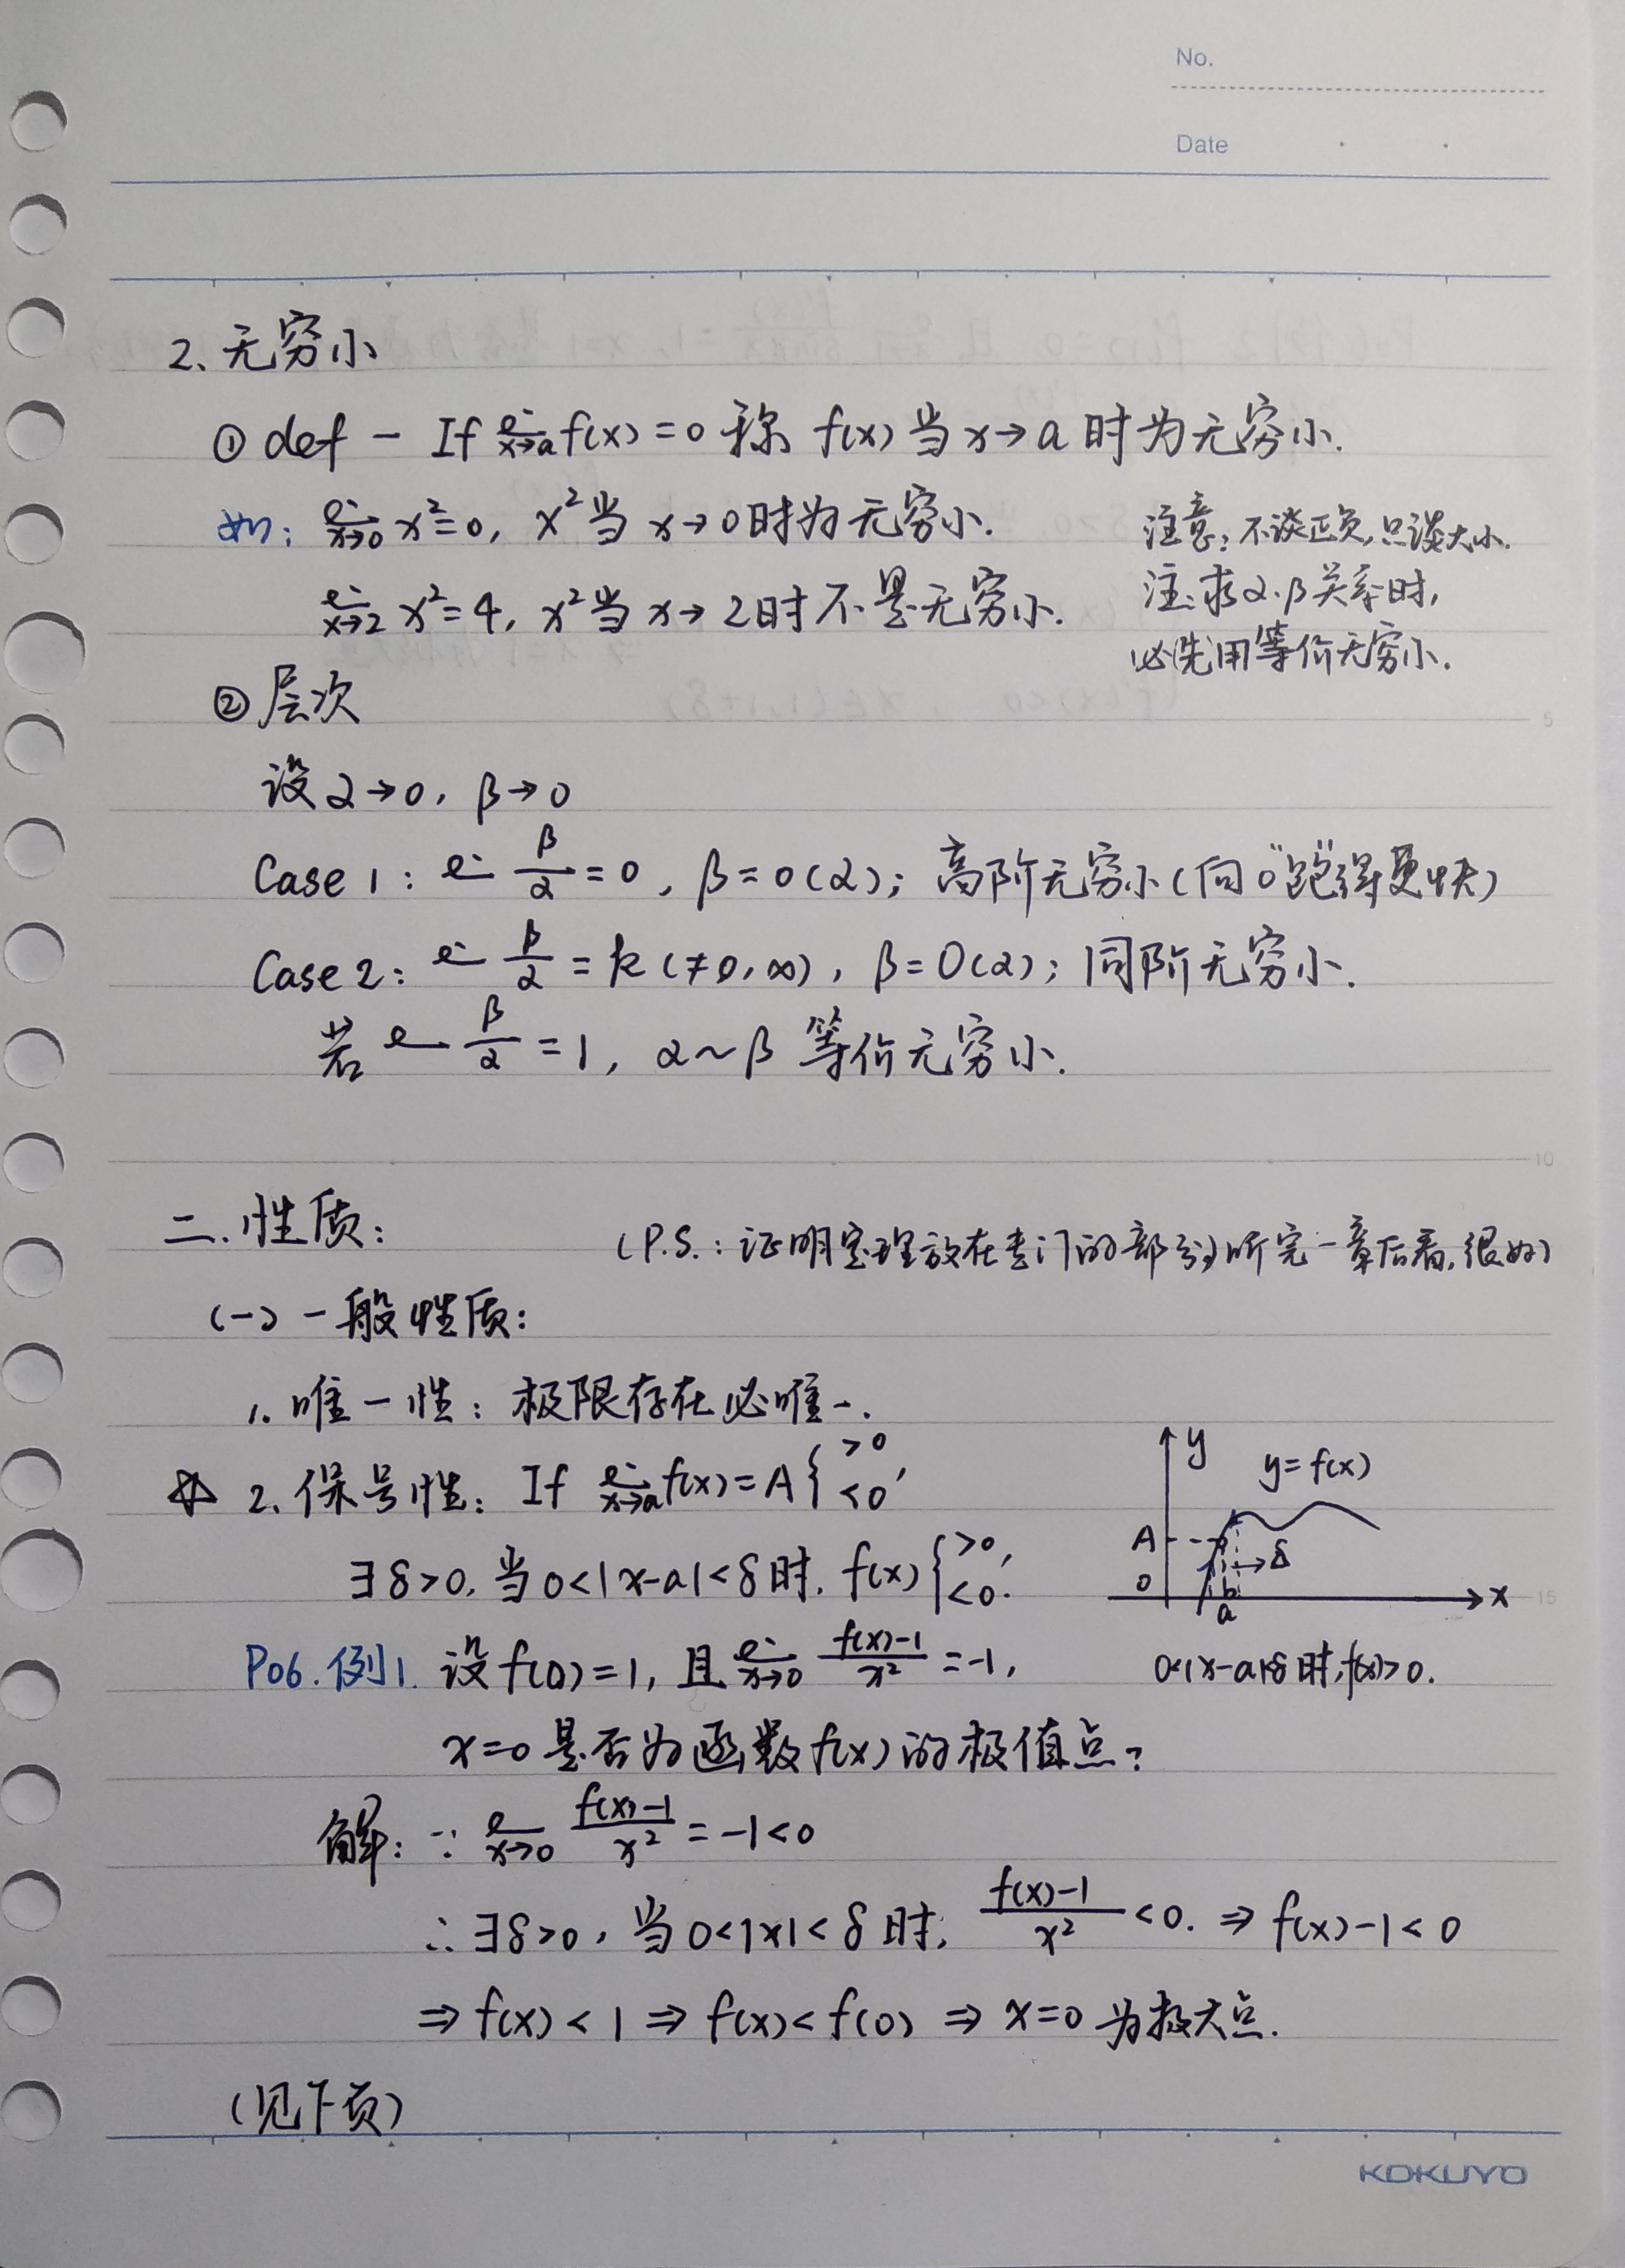 No.
Date
2、无穷小
① def - If lim x→a f(x)=0 称 f(x) 当 x→a 时为无穷小.
如: lim x→0 x²=0, x²当 x→0时为无穷小.
注意:不谈正负,只谈大小.
lim x→2 x²=4, x²当 x→2时不是无穷小.
注:求α.β关系时,
必先用等价无穷小.
② 层次
5
设 α→0, β→0
Case 1: lim β/α = 0, β=o(α); 高阶无穷小(向0"跑"得更快)
Case 2: lim β/α = k (≠0,∞), β=O(α); 同阶无穷小.
若 lim β/α = 1, α~β 等价无穷小.
10
二.性质:
(P.S.: 证明定理放在专门的部分,听完一章后看,很好)
(一) 一般性质:
1. 唯一性: 极限存在必唯一.
☆ 2. 保号性: If lim x→a f(x)=A { >0, <0,
y
y=f(x)
A
δ
0
a
x
∃δ>0, 当0<|x-a|<δ时, f(x) { >0, <0.
15
P06.例1. 设f(0)=1, 且 lim x→0 (f(x)-1)/x² = -1,
0<|x-a|<δ时,f(x)>0.
x=0是否为函数f(x)的极值点?
解: ∵ lim x→0 (f(x)-1)/x² = -1<0
∴ ∃δ>0, 当0<|x|<δ时, (f(x)-1)/x² <0. ⇒ f(x)-1<0
⇒ f(x)<1 ⇒ f(x)<f(0) ⇒ x=0 为极大点.
(见下页)
KOKUYO